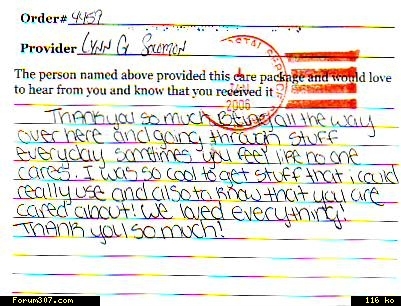 Order# 4459
Provider Lynn G Solomon
The person named above provided this care package and would love
to hear from you and know that you received it
2006
Thank you so much. Being all the way
over here and going through stuff
everyday sometimes you feel like no one
cares. I was so cool to get stuff that i could
really use and also to know that you are
cared about! We loved everything!
Thank you so much!
Forum307.com
116 ko